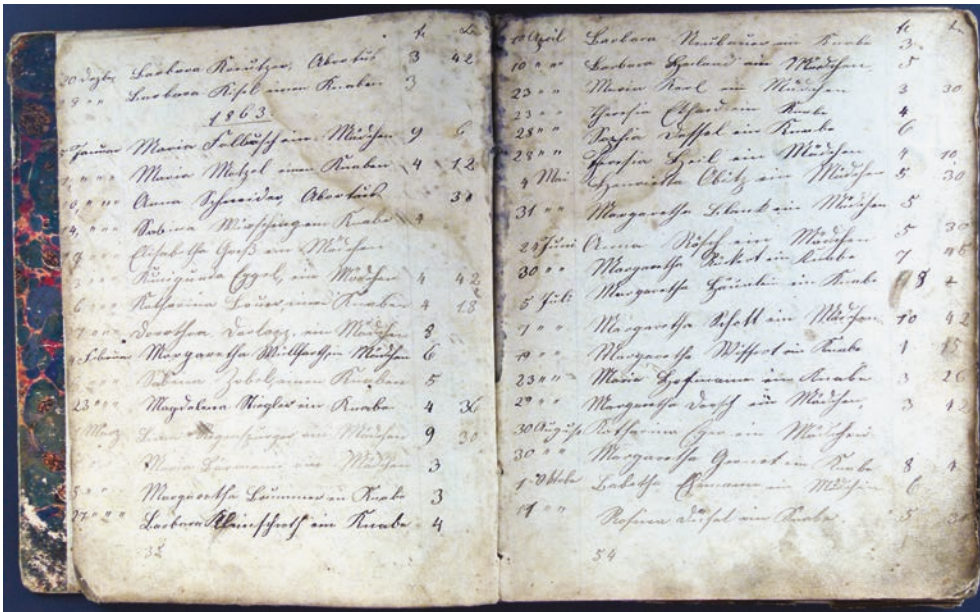 fl kr
20 Dezbr Barbara Kreutzer, Abortus 3 42
29 " " Barbara Kisel einen Knaben 3
1863
5 Januar Maria Follbusch ein Mädchen 9 6
" " Maria Motzel einen Knaben 4 12
10 " " Anna Schneider, Abortus 30
14 " " Sabina ein Knabe 4
Elisabetha Groß ein Mädchen
Kunigunda Eggel, ein Mädchen 4 42
6 " " Katharina Bauer, einen Knaben 4 18
" " Dorothea ein Mädchen 8
Februar Margaretha ein Mädchen 6
" " Sabina Zobel, einen Knaben 5
23 " " Magdalena Stiegler ein Knabe 4 36
März ein Mädchen 9 30
Maria ein Mädchen 3
5 " " Margaretha Brummer ein Knabe 3
27 " " Barbara Kleinschroth ein Knabe 4
32
fl kr
April Barbara Neubauer ein Knabe 3
10 " " Barbara Heiland ein Mädchen 5
23 " " Maria Karl ein Mädchen 3 30
23 " " Theresia ein Knabe 4
28 " " Sophia Dossel ein Knabe 6
28 " " Theresia Heil ein Mädchen 4 10
4 Mai Henrietta Obitz ein Mädchen 5 30
31 " " Margaretha Blank ein Mädchen 5
28 Juni Anna Rösch ein Mädchen 5 30
30 " " Margaretha Rückert ein Knabe 7 46
5 Juli Margaretha ein Knabe 8
7 " " Margaretha Schott ein Mädchen 10 42
19 " " Margaretha ein Knabe 1 15
23 " " Maria Hofmann ein Knabe 3 26
29 " " Margaretha Dorsch ein Mädchen, 3 42
30 August Katharina Eger ein Mädchen
30 " " Margaretha Gernert ein Knabe 8 4
1 Oktober Babetha Ehemann ein Mädchen 6
19 " " Rosina ein Knabe 5 30
54